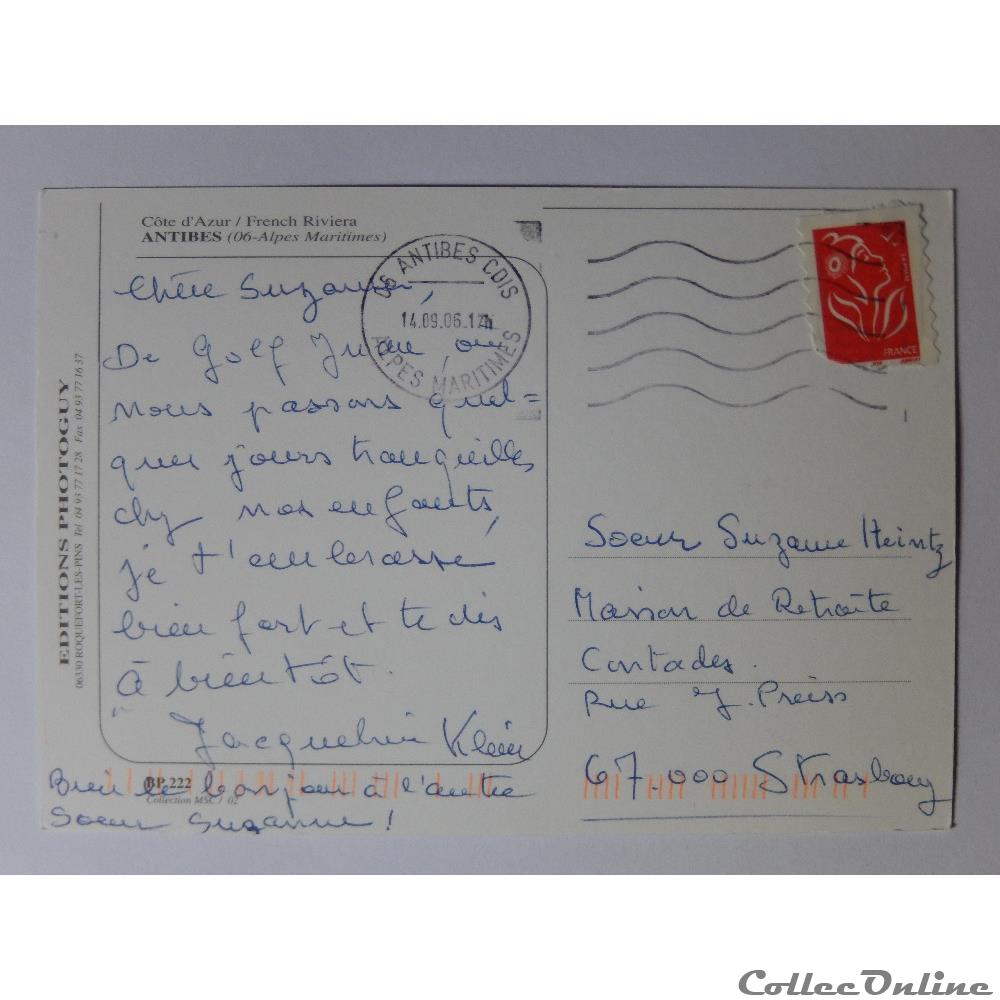 Côte d'Azur / French Riviera
ANTIBES (06-Alpes Maritimes)
06 ANTIBES CDIS
14.09.06.17H
ALPES MARITIMES
FRANCE
Chère Suzanne,
De Golf Juan, où
nous passons quel=
ques jours tranquilles
chez nos enfants,
je t'embrasse
bien fort et te dis
à bientôt.
Jacqueline Klein
Bien le bonjour à l'autre
Soeur Suzanne !
BP 222
Collection MSC / 02
EDITIONS PHOTOGUY
06330 ROQUEFORT-LES-PINS Tel 04 93 77 17 28 Fax 04 93 77 16 37
Soeur Suzanne Heintz
Maison de Retraite
Contades.
Rue J. Preiss
67.000 Strasbourg
CollecOnline